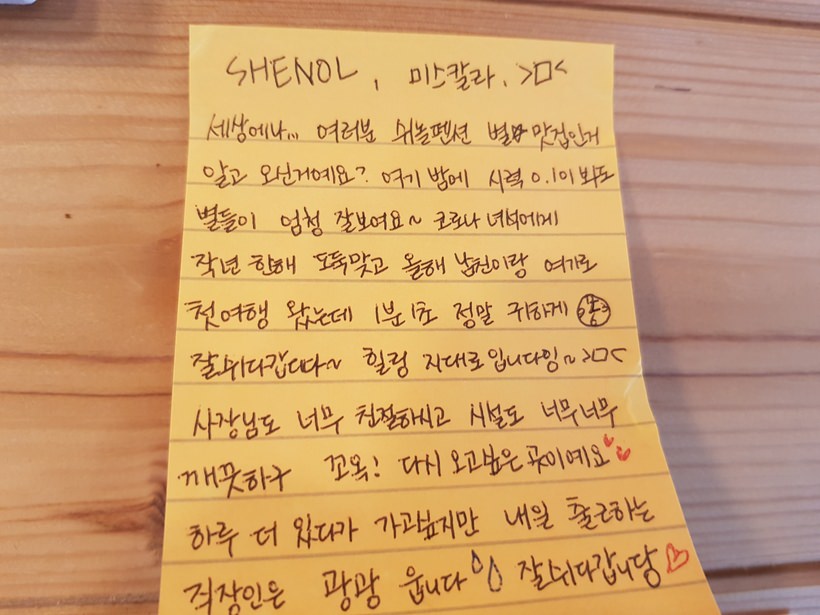 SHENOL, 미스칼라. >ㅁ<
세상에나... 여러분 쉬놀펜션 별 맛집인거
알고 오신거예요? 여기 밤에 시력 0.1이 봐도
별들이 엄청 잘보여요~ 코로나 녀석에게
작년 한해 도둑맞고 올해 남친이랑 여기로
첫여행 왔는데 1분1초 정말 귀하게
잘쉬다갑니다~ 힐링 지대로입니다잉~ >ㅁ<
사장님도 너무 친절하시고 시설도 너무너무
깨끗하구 꼬옥! 다시 오고싶은 곳이예요
하루 더 있다가 가고싶지만 내일 출근하는
직장인은 광광 웁니다 잘쉬다갑니당